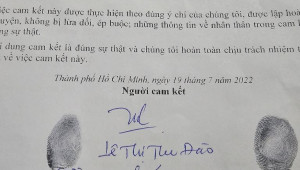 iệc cam kết này được thực hiện theo đúng ý chí của chúng tôi, được lập hoàn
guyện, không bị lừa dối, ép buộc; những thông tin về nhân thân trong cam k
ng sự thật.
i dung cam kết là đúng sự thật và chúng tôi hoàn toàn chịu trách nhiệm t
về việc cam kết này.
Thành phố Hồ Chí Minh, ngày 19 tháng 7 năm 2022
Người cam kết
Lê Thị Thu Đào